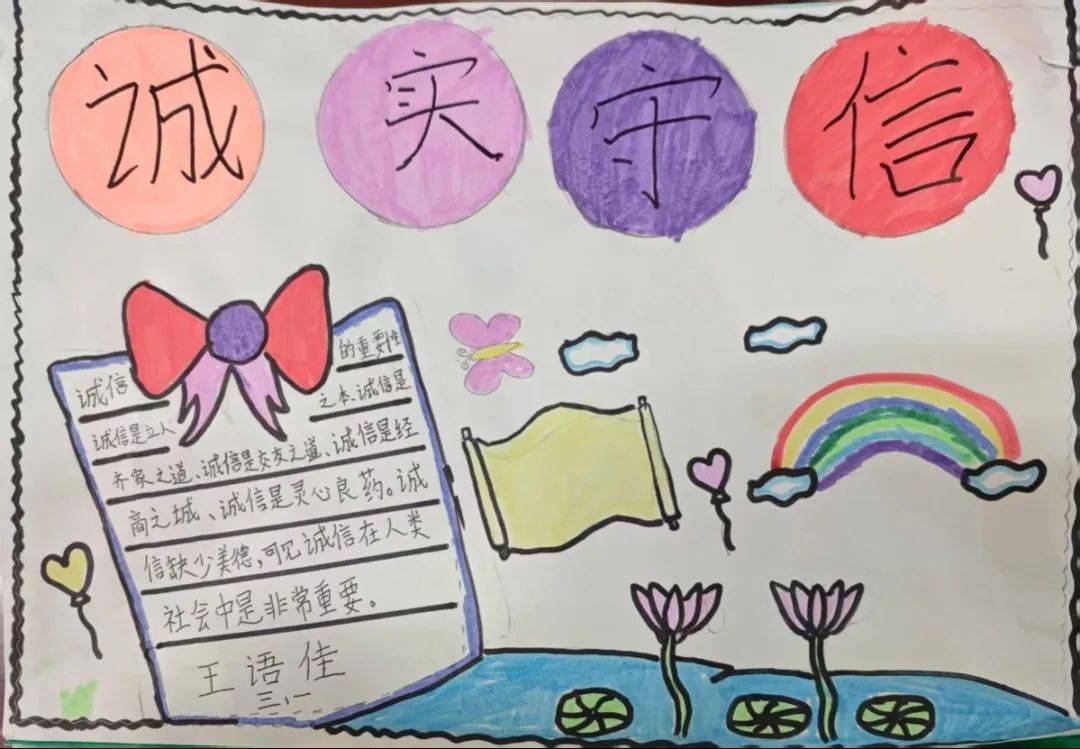 诚实守信
诚信的重要性
诚信是立人之本、诚信是
齐家之道、诚信是交友之道、诚信是经
商之城、诚信是灵心良药。诚
信缺少美德,可见诚信在人类
社会中是非常重要。
王语佳
三、一